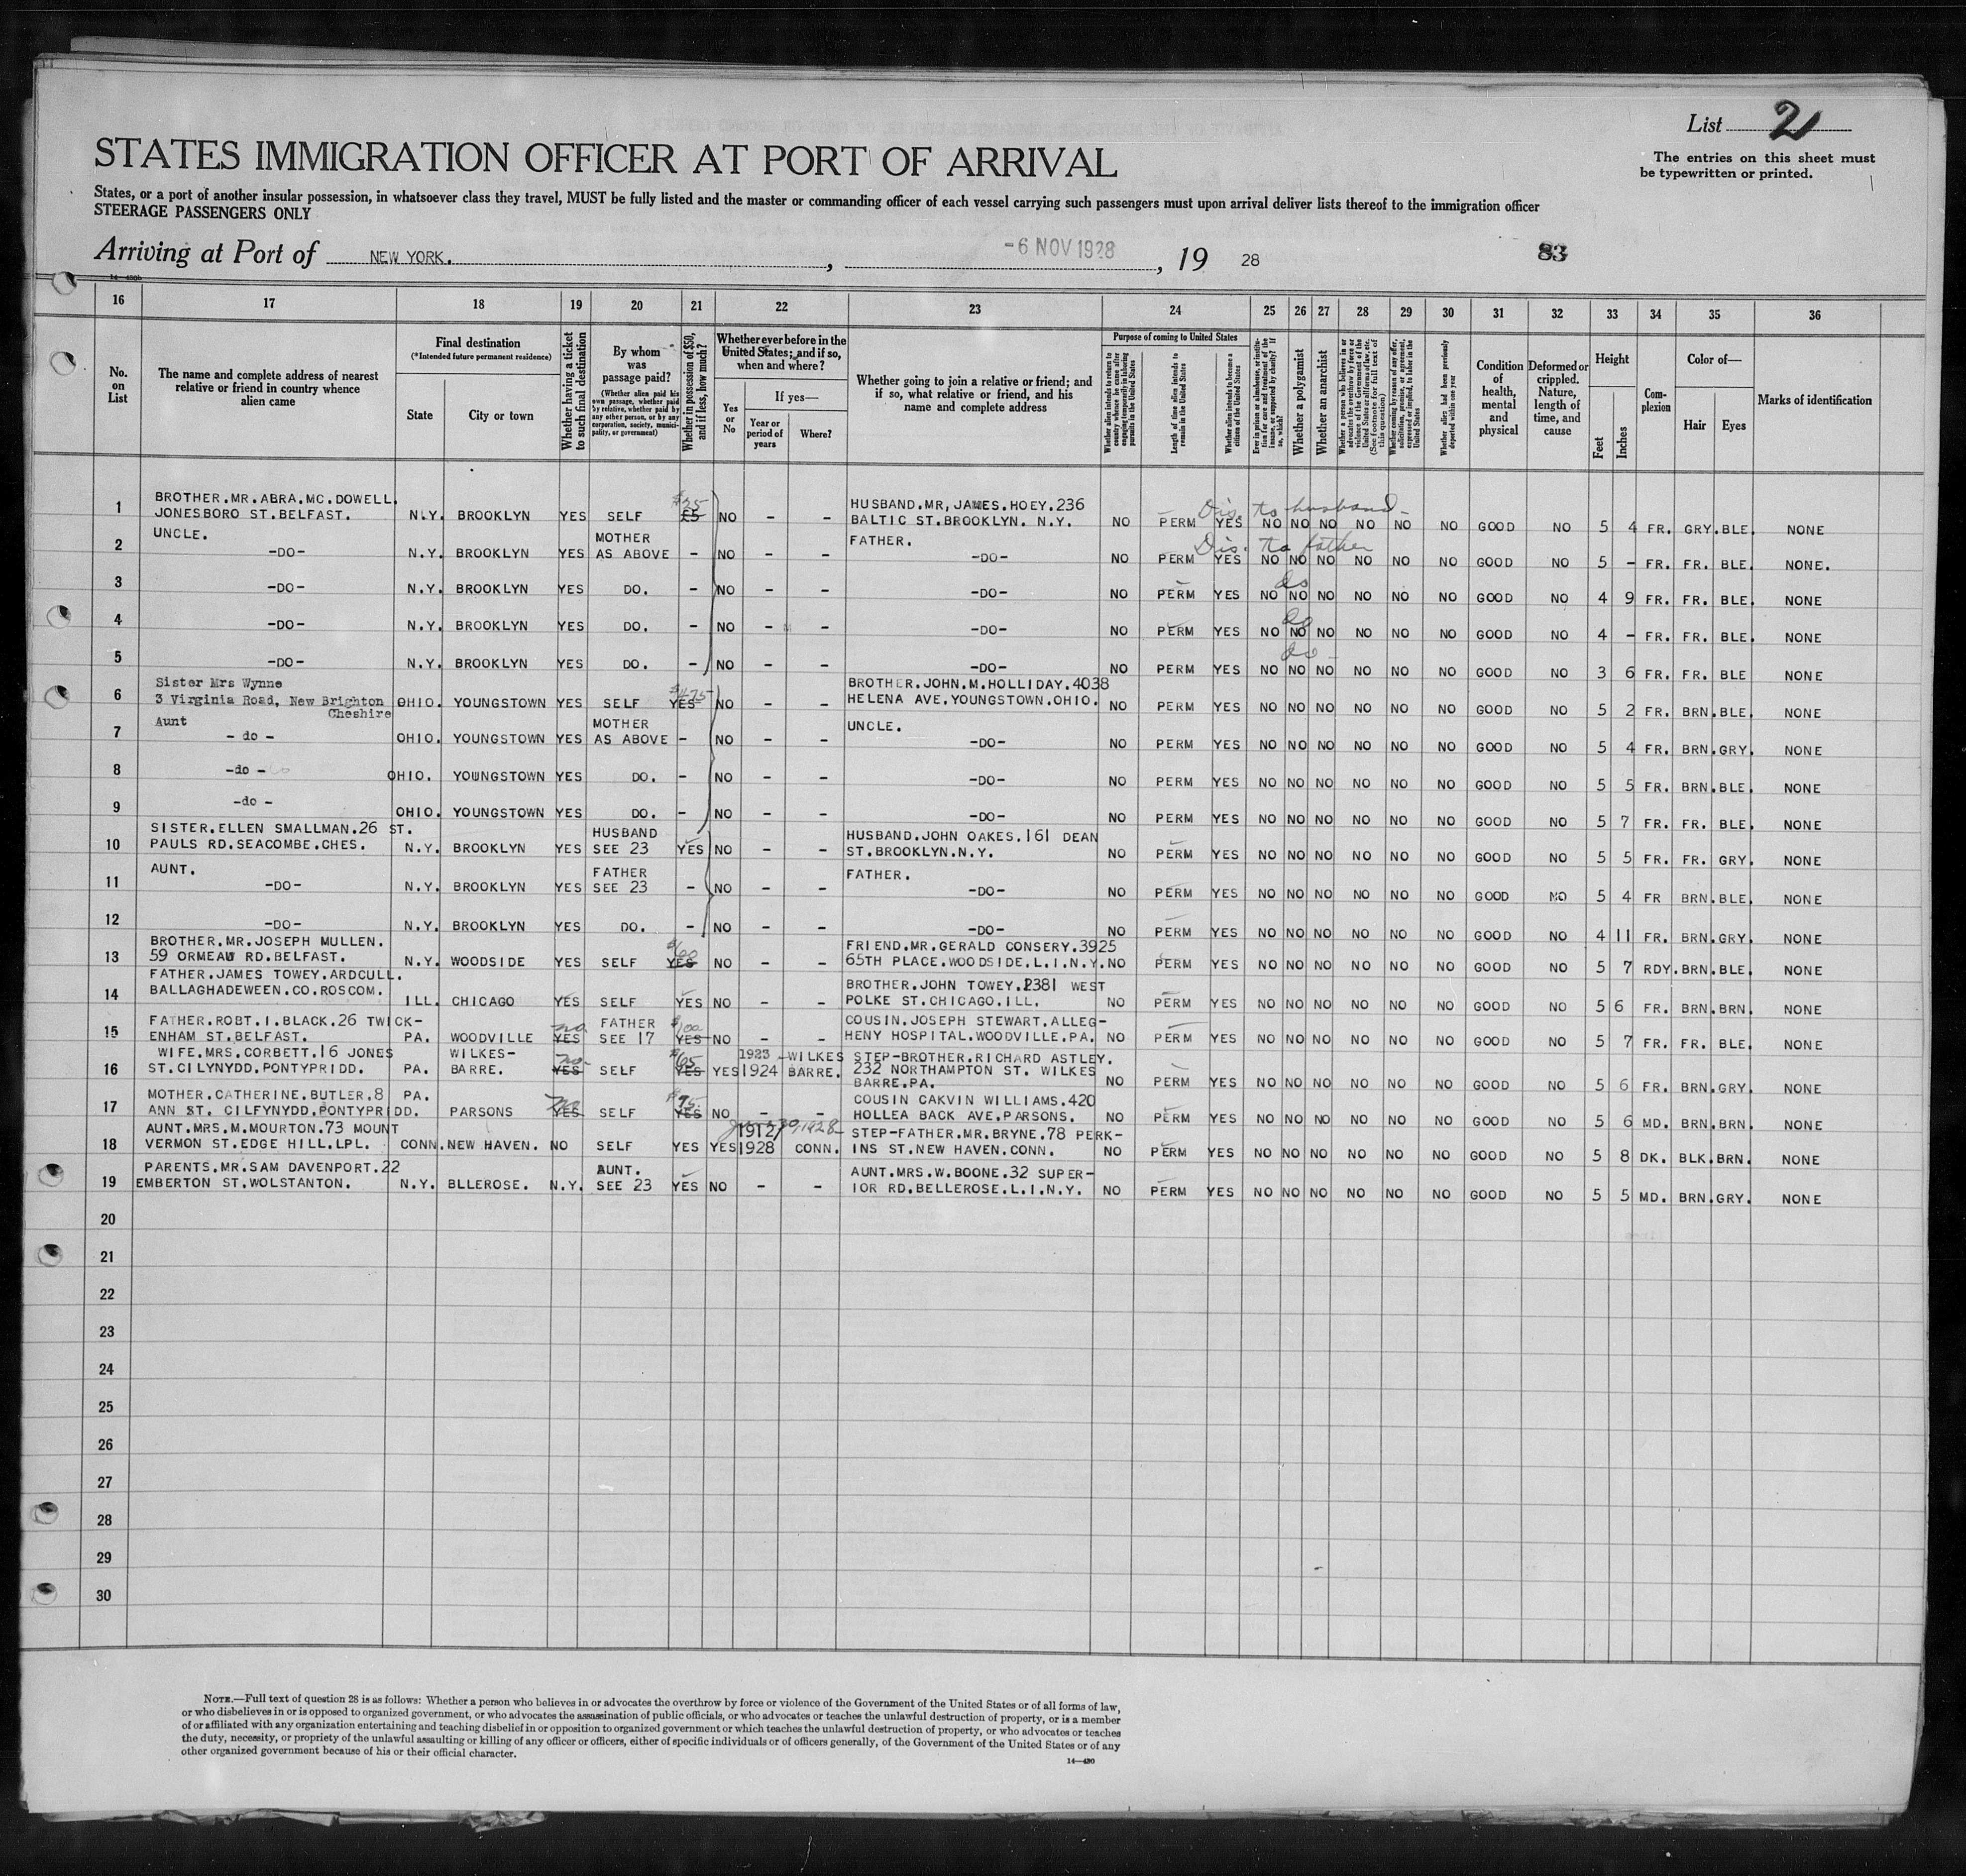 List 2
The entries on this sheet must
be typewritten or printed.
STATES IMMIGRATION OFFICER AT PORT OF ARRIVAL
States, or a port of another insular possession, in whatsoever class they travel, MUST be fully listed and the master or commanding officer of each vessel carrying such passengers must upon arrival deliver lists thereof to the immigration officer
STEERAGE PASSENGERS ONLY
Arriving at Port of NEW YORK. , -6 NOV 1928 , 19 28 83
16 17 18 19 20 21 22 23 24 25 26 27 28 29 30 31 32 33 34 35 36
No. on List
The name and complete address of nearest relative or friend in country whence alien came
Final destination
(*Intended future permanent residence)
State
City or town
Whether having a ticket to such final destination
By whom was passage paid?
(Whether alien paid his own passage, whether paid by relative, whether paid by any other person, or by any corporation, society, municipality, or government)
Whether in possession of $50, and if less, how much?
Whether ever before in the United States; and if so, when and where?
Yes or No
If yes—
Year or period of years
Where?
Whether going to join a relative or friend; and if so, what relative or friend, and his name and complete address
Purpose of coming to United States
Length of time alien intends to remain in the United States
Whether alien intends to become a citizen of the United States
Whether a polygamist
Whether an anarchist
Whether alien had been previously deported within one year
Condition of health, mental and physical
Deformed or crippled. Nature, length of time, and cause
Height
Feet
Inches
Complexion
Color of—
Hair
Eyes
Marks of identification
1 BROTHER.MR.ABRA.MC.DOWELL. HUSBAND.MR,JAMES.HOEY.236 Dis. to husband
JONESBORO ST.BELFAST. N.Y. BROOKLYN YES SELF £5 $25 NO - - BALTIC ST.BROOKLYN. N.Y. NO PERM YES NO NO NO NO NO NO GOOD NO 5 4 FR. GRY. BLE. NONE
2 UNCLE. MOTHER FATHER. Dis. to father
-DO- N.Y. BROOKLYN YES AS ABOVE - NO - - -DO- NO PERM YES NO NO NO NO NO NO GOOD NO 5 - FR. FR. BLE. NONE.
3 -DO- N.Y. BROOKLYN YES DO. - NO - - -DO- NO PERM YES do NO NO NO NO NO NO GOOD NO 4 9 FR. FR. BLE. NONE
4 -DO- N.Y. BROOKLYN YES DO. - NO - - -DO- NO PERM YES do NO NO NO NO NO NO GOOD NO 4 - FR. FR. BLE. NONE
5 -DO- N.Y. BROOKLYN YES DO. - NO - - -DO- NO PERM YES do NO NO NO NO NO NO GOOD NO 3 6 FR. FR. BLE NONE
6 Sister Mrs Wynne BROTHER.JOHN.M.HOLLIDAY.4038
3 Virginia Road, New Brighton OHIO. YOUNGSTOWN YES SELF YES NO - - HELENA AVE.YOUNGSTOWN.OHIO. NO PERM YES NO NO NO NO NO NO GOOD NO 5 2 FR. BRN. BLE. NONE
Cheshire
7 Aunt MOTHER UNCLE.
- do - OHIO. YOUNGSTOWN YES AS ABOVE - NO - - -DO- NO PERM YES NO NO NO NO NO NO GOOD NO 5 4 FR. BRN. GRY. NONE
8 -do - OHIO. YOUNGSTOWN YES DO. - NO - - -DO- NO PERM YES NO NO NO NO NO NO GOOD NO 5 5 FR. BRN. BLE. NONE
9 -do - OHIO. YOUNGSTOWN YES DO. - NO - - -DO- NO PERM YES NO NO NO NO NO NO GOOD NO 5 7 FR. FR. BLE. NONE
10 SISTER.ELLEN SMALLMAN.26 ST. HUSBAND HUSBAND.JOHN OAKES.161 DEAN
PAULS RD.SEACOMBE.CHES. N.Y. BROOKLYN YES SEE 23 YES NO - - ST.BROOKLYN.N.Y. NO PERM YES NO NO NO NO NO NO GOOD NO 5 5 FR. FR. GRY. NONE
11 AUNT. FATHER FATHER.
-DO- N.Y. BROOKLYN YES SEE 23 - NO - - -DO- NO PERM YES NO NO NO NO NO NO GOOD NO 5 4 FR BRN. BLE. NONE
12 -DO- N.Y. BROOKLYN YES DO. - NO - - -DO- NO PERM YES NO NO NO NO NO NO GOOD NO 4 11 FR. BRN. GRY. NONE
13 BROTHER.MR.JOSEPH MULLEN. $60 FRIEND.MR.GERALD CONSERY.3925
59 ORMEAU RD.BELFAST. N.Y. WOODSIDE YES SELF YES NO - - 65TH PLACE.WOODSIDE.L.I.N.Y. NO PERM YES NO NO NO NO NO NO GOOD NO 5 7 RDY. BRN. BLE. NONE
14 FATHER.JAMES TOWEY.ARDCULL. BROTHER.JOHN TOWEY.2381 WEST
BALLAGHADEWEEN.CO.ROSCOM. ILL. CHICAGO YES SELF YES NO - - POLKE ST.CHICAGO.ILL. NO PERM YES NO NO NO NO NO NO GOOD NO 5 6 FR. BRN. BRN. NONE
15 FATHER.ROBT.I.BLACK.26 TWICK- no FATHER $100 COUSIN.JOSEPH STEWART.ALLEG-
ENHAM ST.BELFAST. PA. WOODVILLE YES SEE 17 YES NO - - HENY HOSPITAL.WOODVILLE.PA. NO PERM YES NO NO NO NO NO NO GOOD NO 5 7 FR. FR. BLE. NONE
16 WIFE.MRS.CORBETT.16 JONES WILKES- no $65 1923 - WILKES STEP-BROTHER.RICHARD ASTLEY.
ST.CILYNYDD.PONTYPRIDD. PA. BARRE. YES SELF YES YES 1924 BARRE. 232 NORTHAMPTON ST. WILKES
BARRE.PA. NO PERM YES NO NO NO NO NO NO GOOD NO 5 6 FR. BRN. GRY. NONE
17 MOTHER.CATHERINE.BUTLER.8 PA. no $75 COUSIN CAKVIN WILLIAMS.420
ANN ST. CILFYNYDD.PONTYPRIDD. PARSONS YES SELF YES NO - - HOLLEA BACK AVE.PARSONS. NO PERM YES NO NO NO NO NO NO GOOD NO 5 6 MD. BRN. BRN. NONE
18 AUNT.MRS.M.MOURTON.73 MOUNT 1912/ 1928 STEP-FATHER.MR.BRYNE.78 PERK-
VERMON ST.EDGE HILL.LPL. CONN. NEW HAVEN. NO SELF YES YES 1928 CONN. INS ST.NEW HAVEN.CONN. NO PERM YES NO NO NO NO NO NO GOOD NO 5 8 DK. BLK. BRN. NONE
19 PARENTS.MR.SAM DAVENPORT.22 AUNT. AUNT.MRS.W.BOONE.32 SUPER-
EMBERTON ST.WOLSTANTON. N.Y. BLLEROSE. N.Y. SEE 23 YES NO - - IOR RD.BELLEROSE.L.I.N.Y. NO PERM YES NO NO NO NO NO NO GOOD NO 5 5 MD. BRN. GRY. NONE
20
21
22
23
24
25
26
27
28
29
30
NOTE.—Full text of question 28 is as follows: Whether a person who believes in or advocates the overthrow by force or violence of the Government of the United States or of all forms of law,
or who disbelieves in or is opposed to organized government, or who advocates the assassination of public officials, or who advocates or teaches the unlawful destruction of property, or is a member
of or affiliated with any organization entertaining and teaching disbelief in or opposition to organized government or which teaches the unlawful destruction of property, or who advocates or teaches
the duty, necessity, or propriety of the unlawful assaulting or killing of any officer or officers, either of specific individuals or of officers generally, of the Government of the United States or of any
other organized government because of his or their official character.
14—430